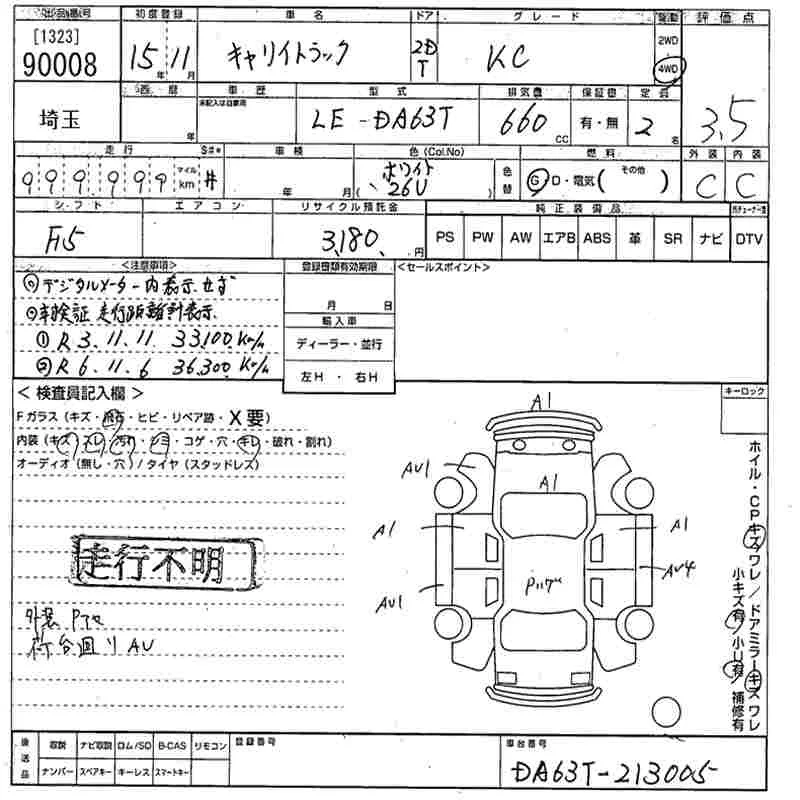 出品番号 初度登録 車名 ドア グレード 駆動 評価点
[1323]
90008 15年 11月 キャリイトラック 2D T KC 2WD 4WD 3.5
西暦 車歴 型式 排気量 保証書 定員
未記入は自家用
埼玉 年 LE-DA63T 660cc 有・無 2名
走行 S#* 車検 色(Col.No) 燃料 外装 内装
999999 マイル km # 年 月 ホワイト (26U) 色替 G D・電気(その他) C C
シフト エアコン リサイクル預託金 純正装備品
F5 3,180円 PS PW AW エアB ABS 革 SR ナビ DTV
<注意事項> 登録書類有効期限 <セールスポイント>
デジタルメーター内表示せず
車検証 走行距離計表示
① R3.11.11 33,100Km/h
② R6.11.6 36,300Km/h
月 日
輸入車
ディーラー・並行
左H・右H
<検査員記入欄> キーロック
Fガラス(キズ・飛石・ヒビ・リペア跡・X要)
内装(キズ・スレ・汚れ・シミ・コゲ・穴・キレ・破れ・割れ)
オーディオ(無し・穴)/タイヤ(スタッドレス)
走行不明
外装 Pアセ
荷台回りAU
A1
AU1
A1
A1
A1
AU4
AU1
Pハゲ
ホイル・CPキズワレ/ドアミラーキズワレ
小キズ有/小U有/補修有
後送品 取説 ナビ取説 ロム/SD B-CAS リモコン 登録番号 車台番号
ナンバー スペアキー キーレス スマートキー DA63T-213005